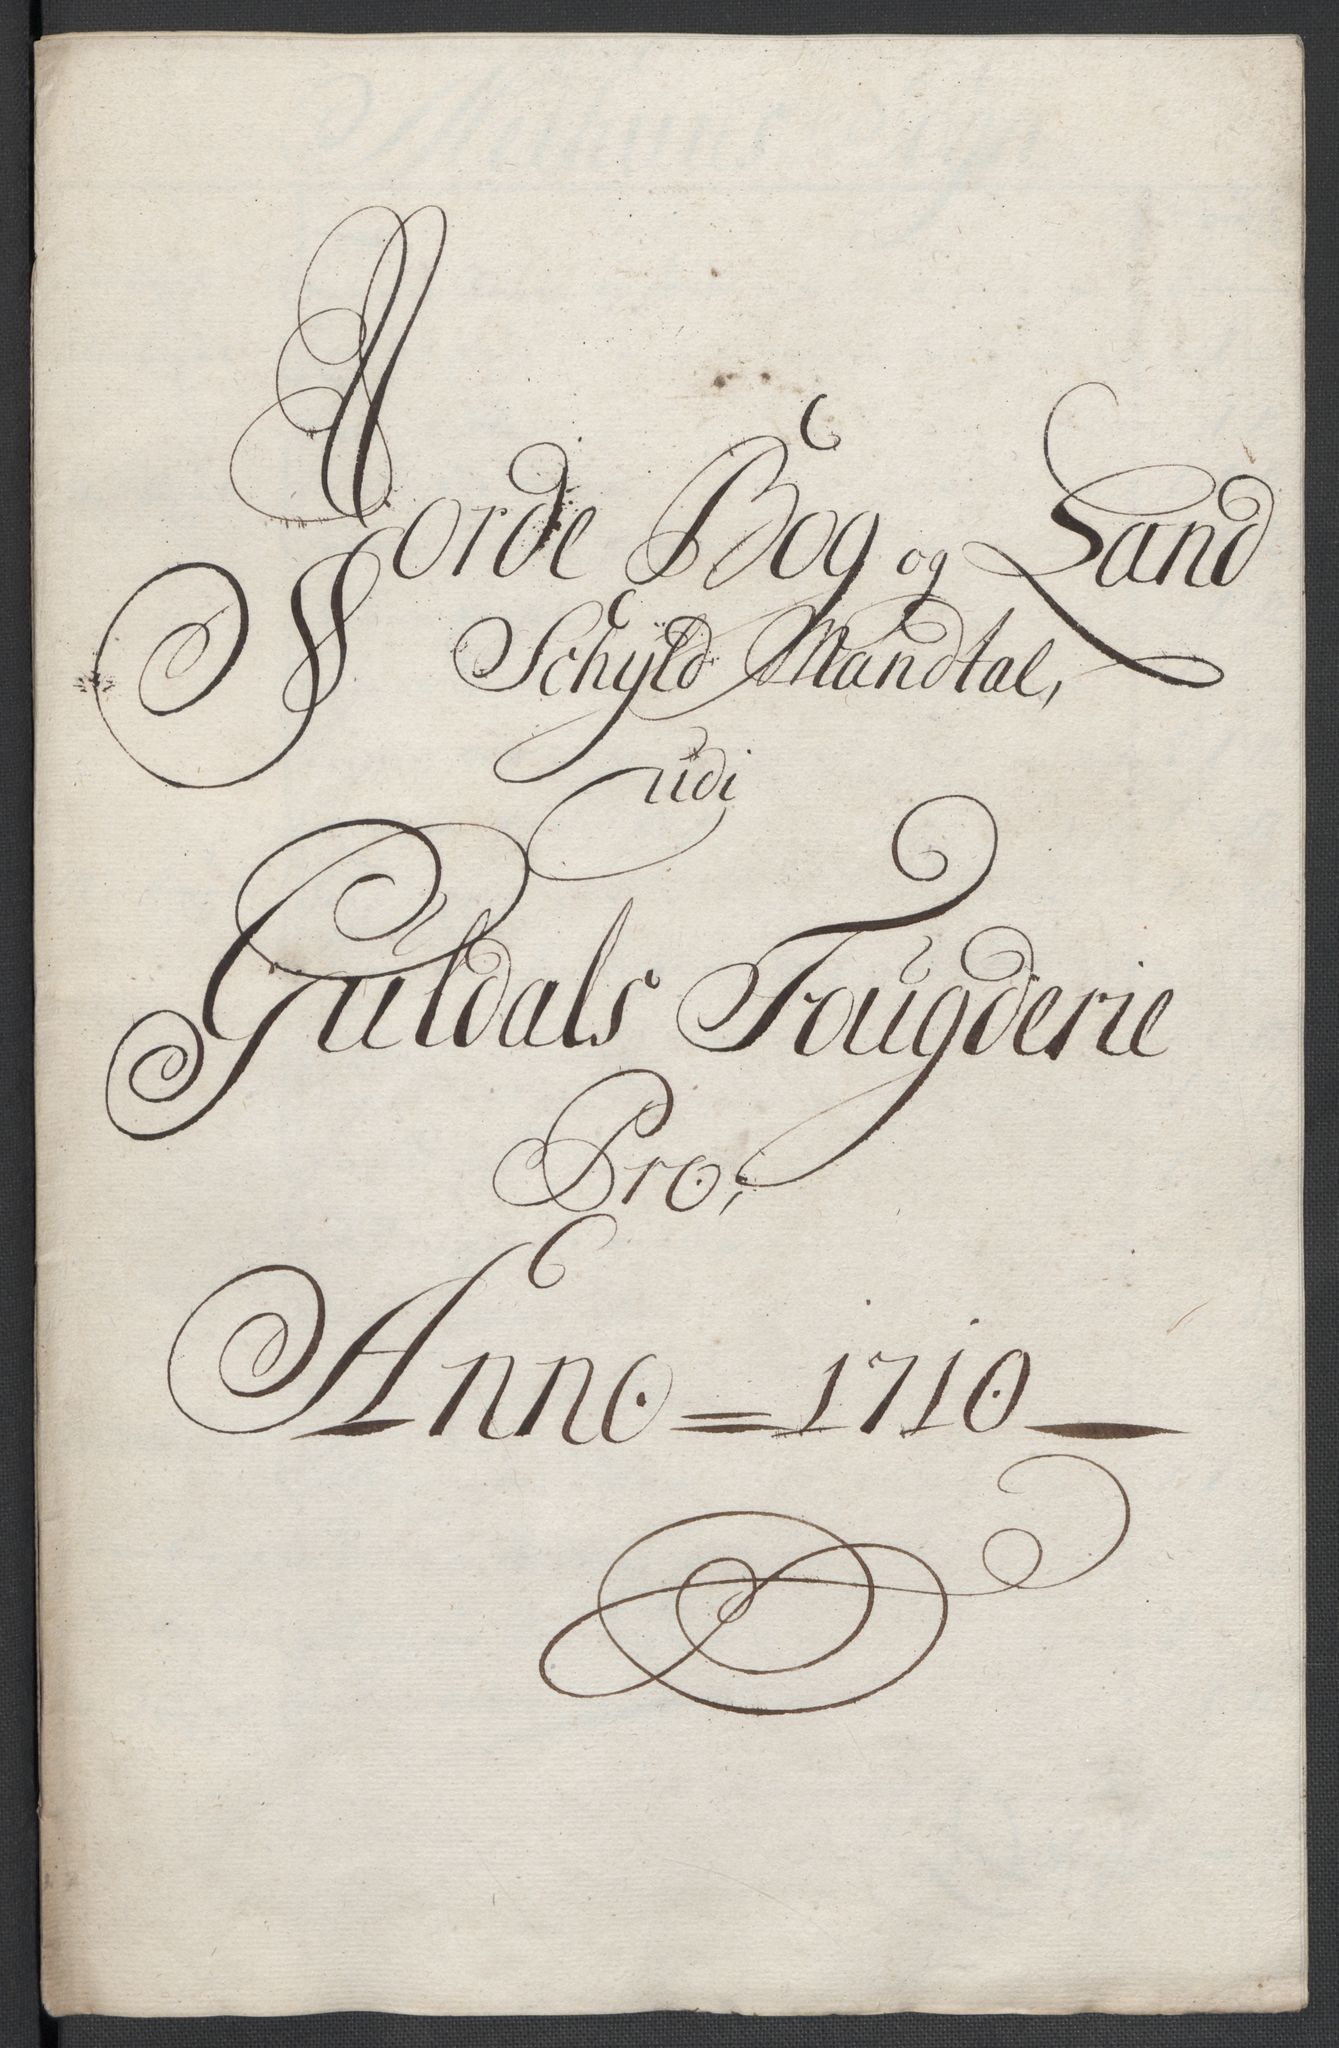 Jorde Bog og Land
Schyld Mandtal,
udi
Guldals Fougderie
Pro,
Anno = 1710